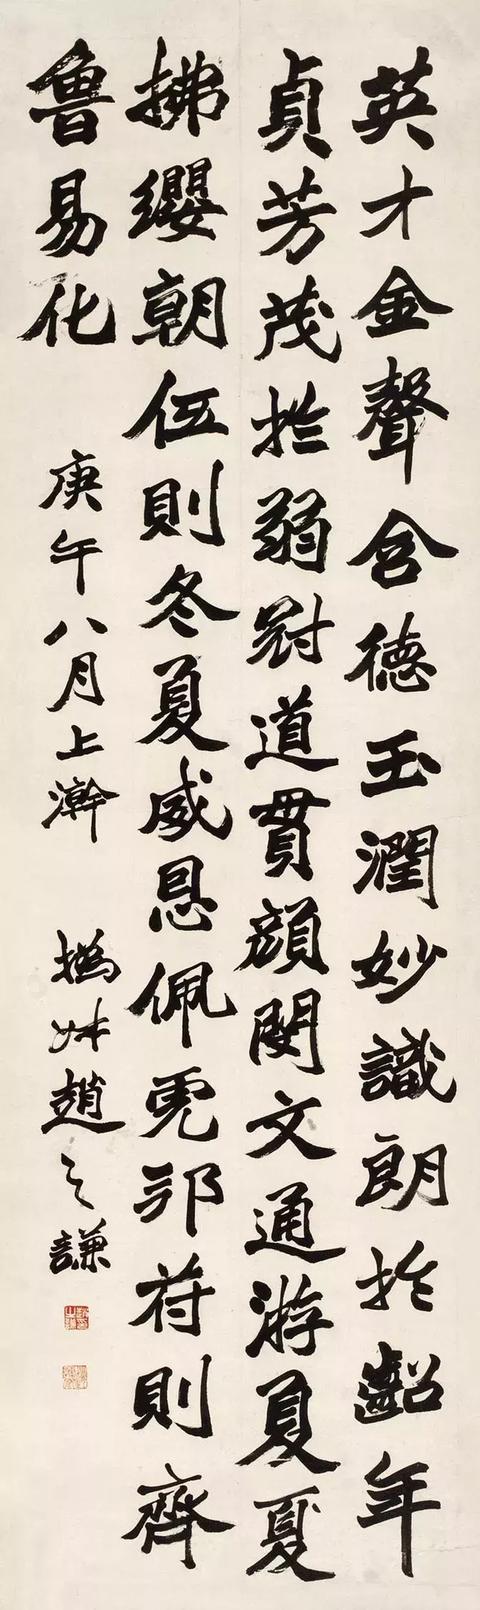 英才金聲含德玉潤妙識朗於齠年
貞芳茂於弱冠道貫顏閔文通游夏夏
拂纓朝伍則冬夏威恩佩虎邦符則齊
魯易化
庚午八月上澣 撝叔趙之謙